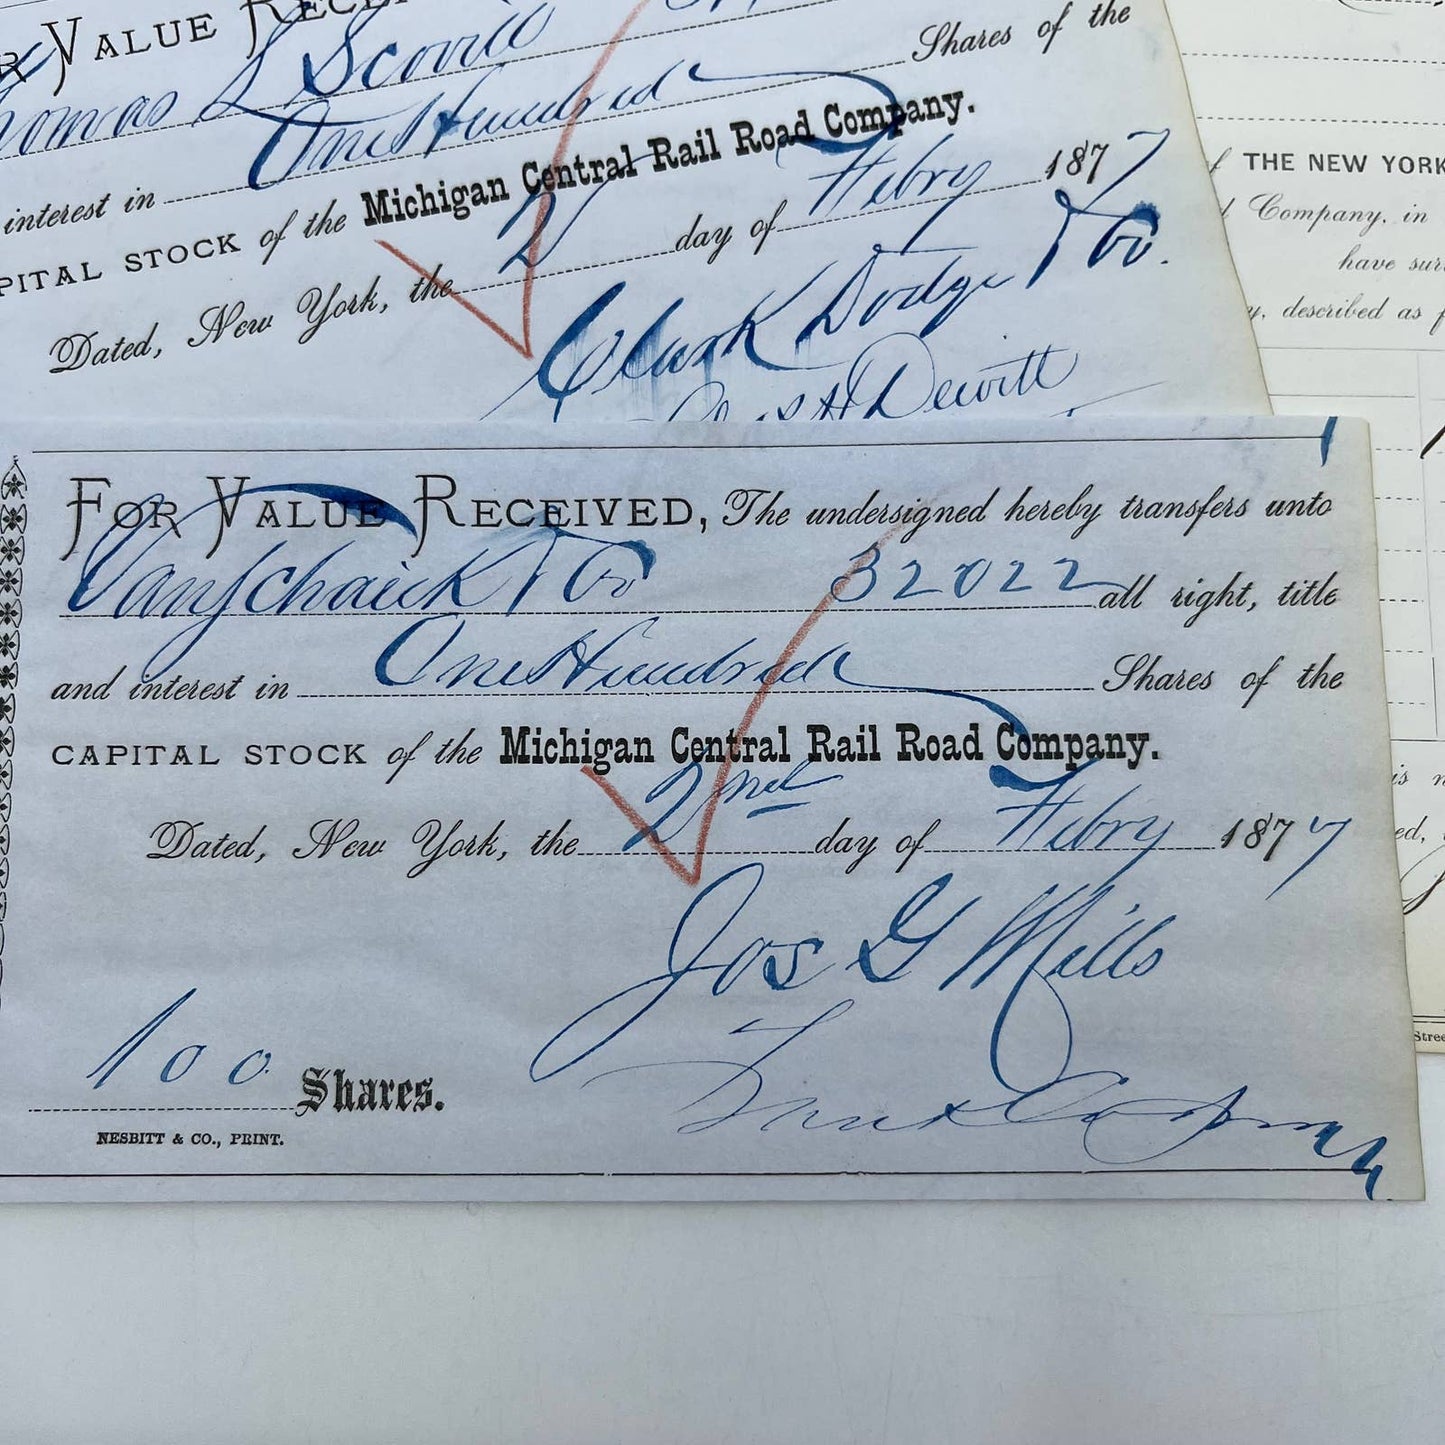 For Value Recei
homas L Scovill
interest in One Hundred Shares of the
PITAL STOCK of the Michigan Central Rail Road Company.
Dated, New York, the 2 day of Febry 1877
Clark Dodge & Co.
Dewitt
For Value Received, The undersigned hereby transfers unto
VanSchaick & Co 32022 all right, title
and interest in One Hundred Shares of the
CAPITAL STOCK of the Michigan Central Rail Road Company.
Dated, New York, the 2nd day of Febry 1877
Jos G Mills
100 Shares.
NESBITT & CO., PRINT.
THE NEW YORK
Company, in
have sur
y, described as f
is n
ed,
Stree